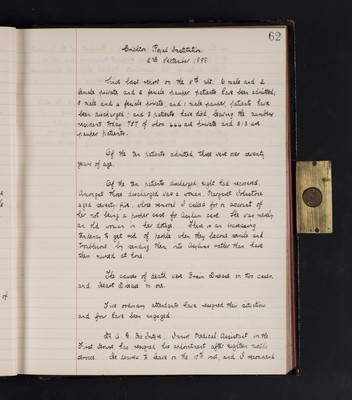 62
Crichton Royal Institution
2nd September 1898
Since last report on the 5th ult. 6 male and 2
female private and 2 female pauper patients have been admitted;
5 male and 4 female private and 1 male pauper patients have
been discharged; and 3 patients have died, leaving the number
resident today 757 of whom 444 are private and 313 are
pauper patients.
Of the ten patients admitted, three were over seventy
years of age.
Of the ten patients discharged, eight had recovered.
Amongst those discharged was a woman, Margaret Johnstone
aged seventy five, whose removal I called for on account of
her not being a proper case for Asylum care. She was merely
an old woman in her dotage. There is an increasing
tendency to get rid of people when they become senile and
troublesome by sending them into Asylums rather than have
them nursed at home.
The causes of death were Brain Disease in two cases,
and Heart Disease in one.
Five ordinary attendants have resigned their situation
and four have been engaged.
Junior Medical Assistant in the
First House has resigned his appointment after eighteen months
service. He desires to leave on the and I recommend
of